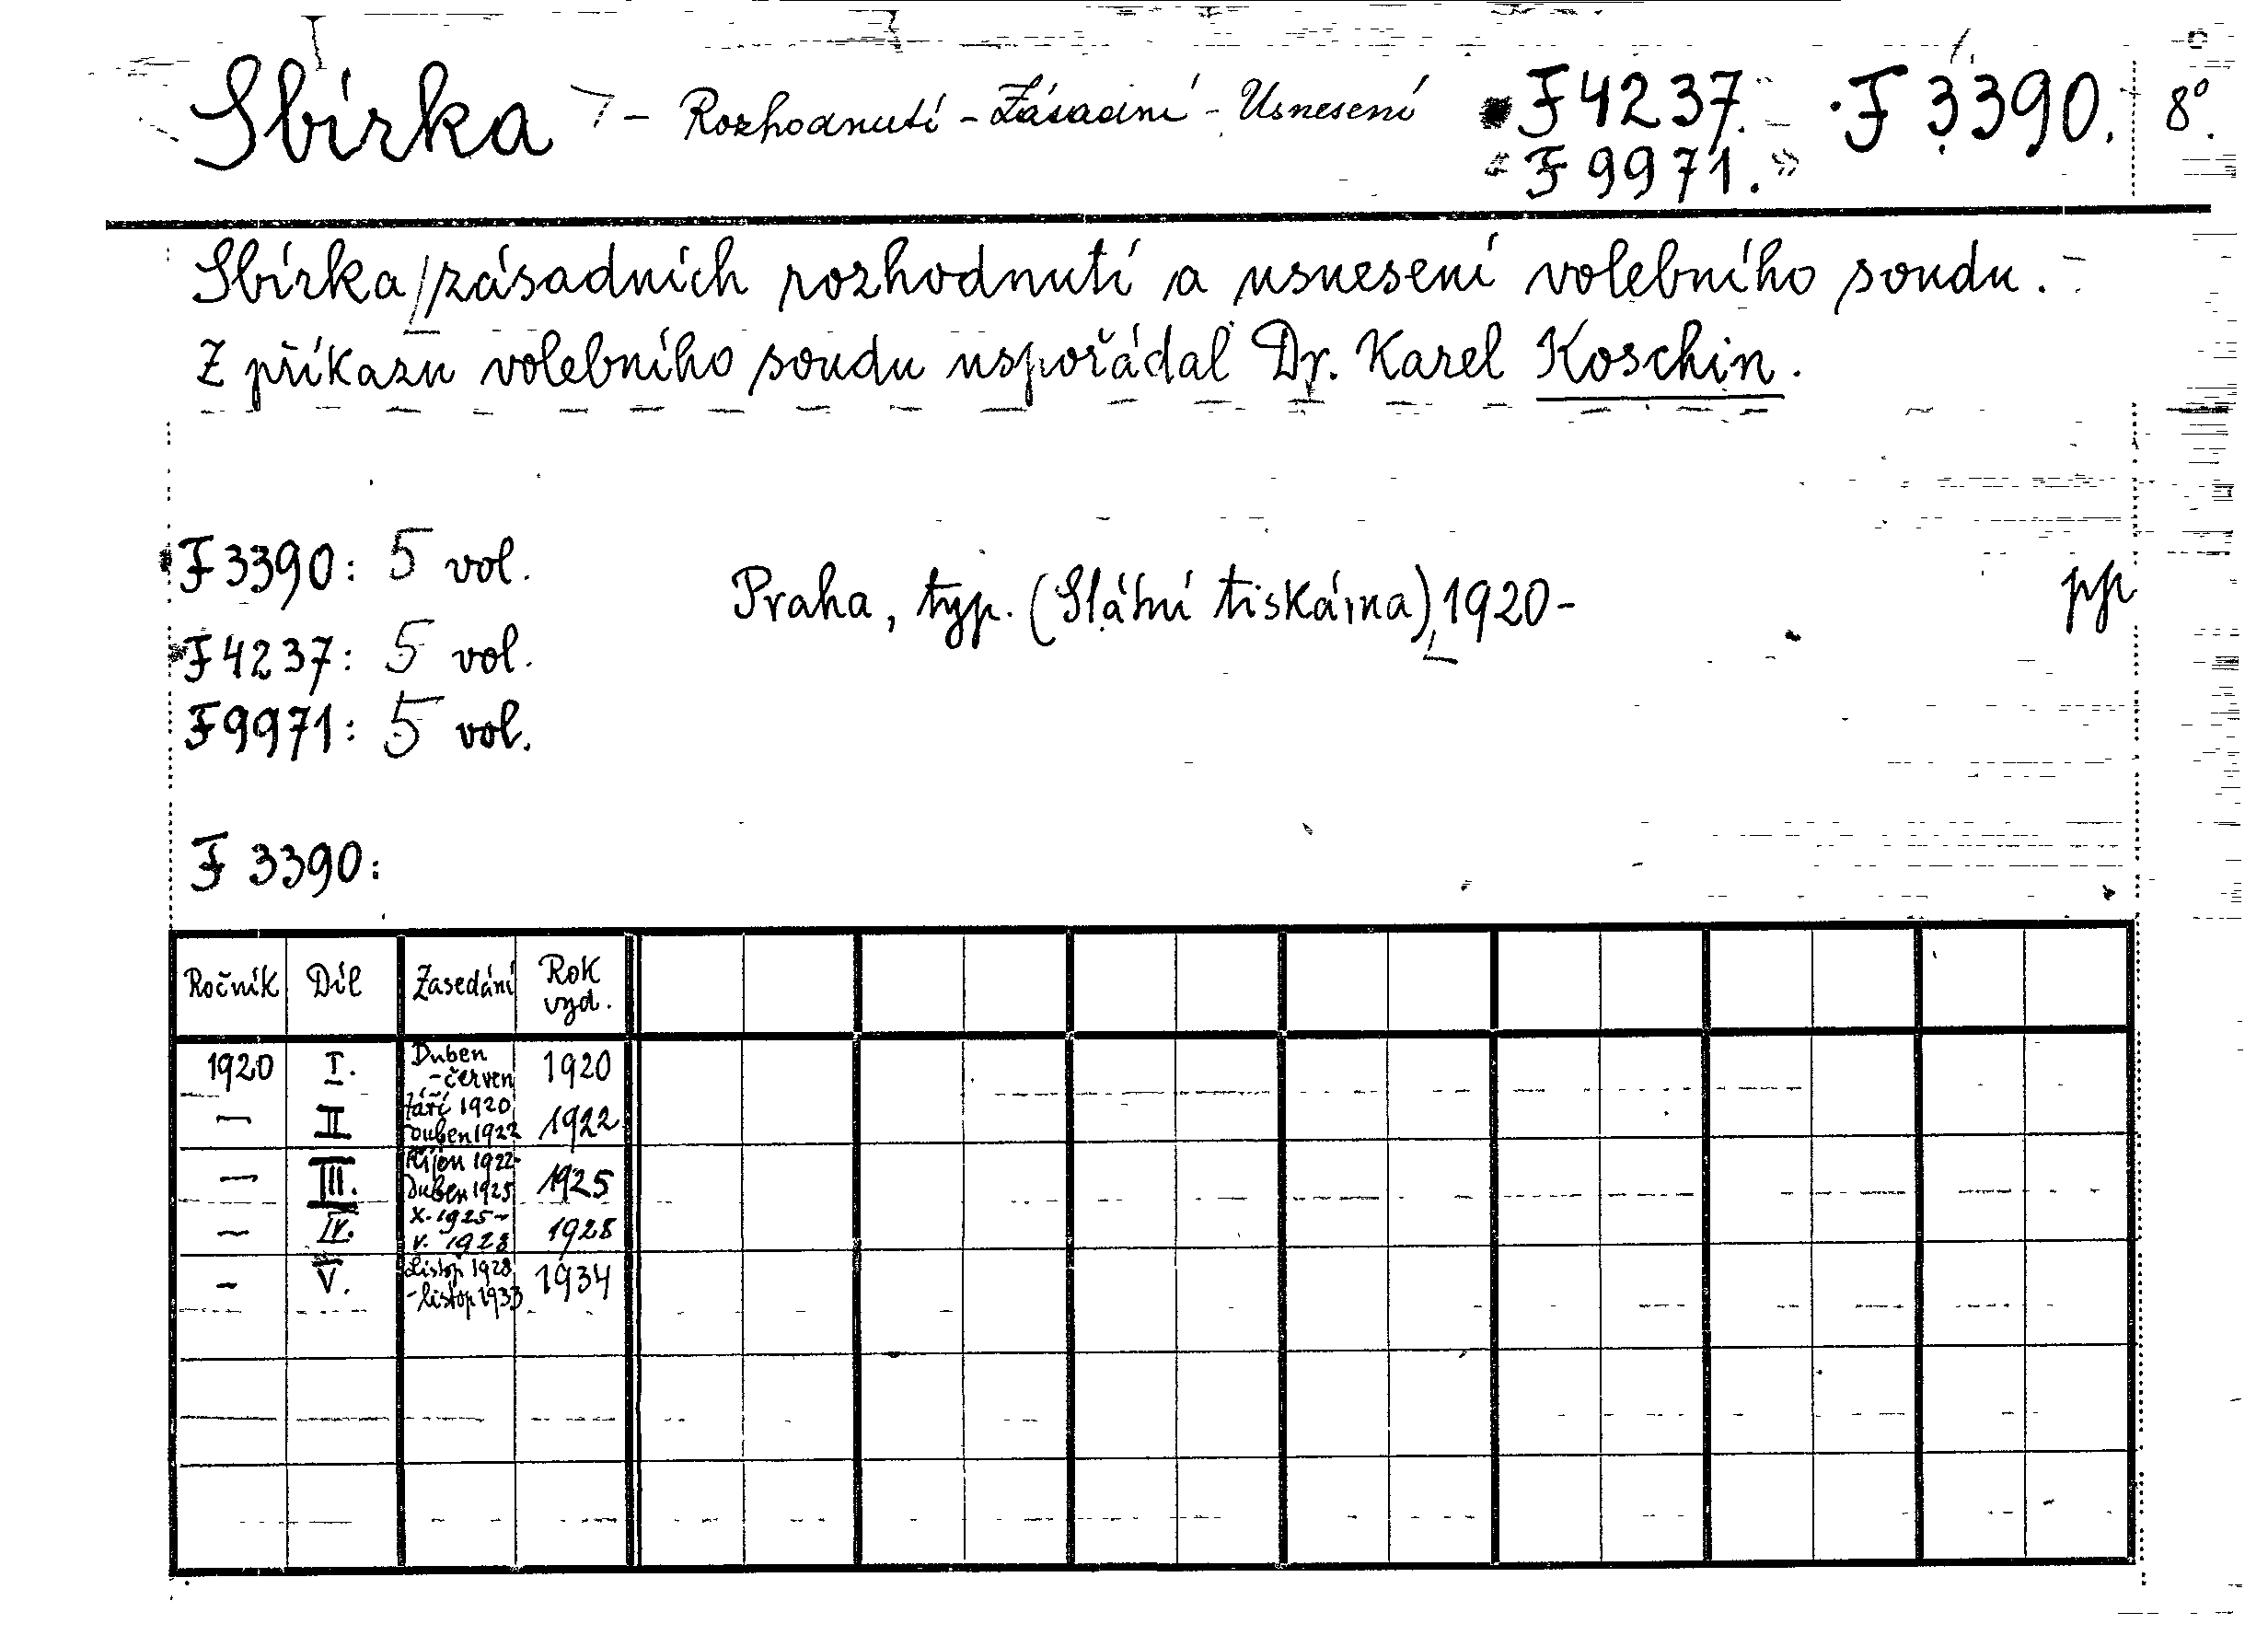 Sbírka - Rozhodnutí - Zásadní - Usnesení F 4237. F 3390. 8°.
F 9971.
Sbírka zásadních rozhodnutí a usnesení volebního soudu. -
Z příkazu volebního soudu uspořádal Dr. Karel Koschin.
F 3390: 5 vol.
Praha, typ. (Státní tiskárna) 1920- pp
F 4237: 5 vol.
F 9971: 5 vol.
F 3390:
Ročník Díl Zasedání Rok vyd.
1920 I. Duben - červen 1920
— II Září 1920 duben 1922 1922
— III. Říjen 1922- Duben 1925 1925
— IV. X. 1925 - V. 1928 1928
— V. Listop 1928 - listop 1933 1934